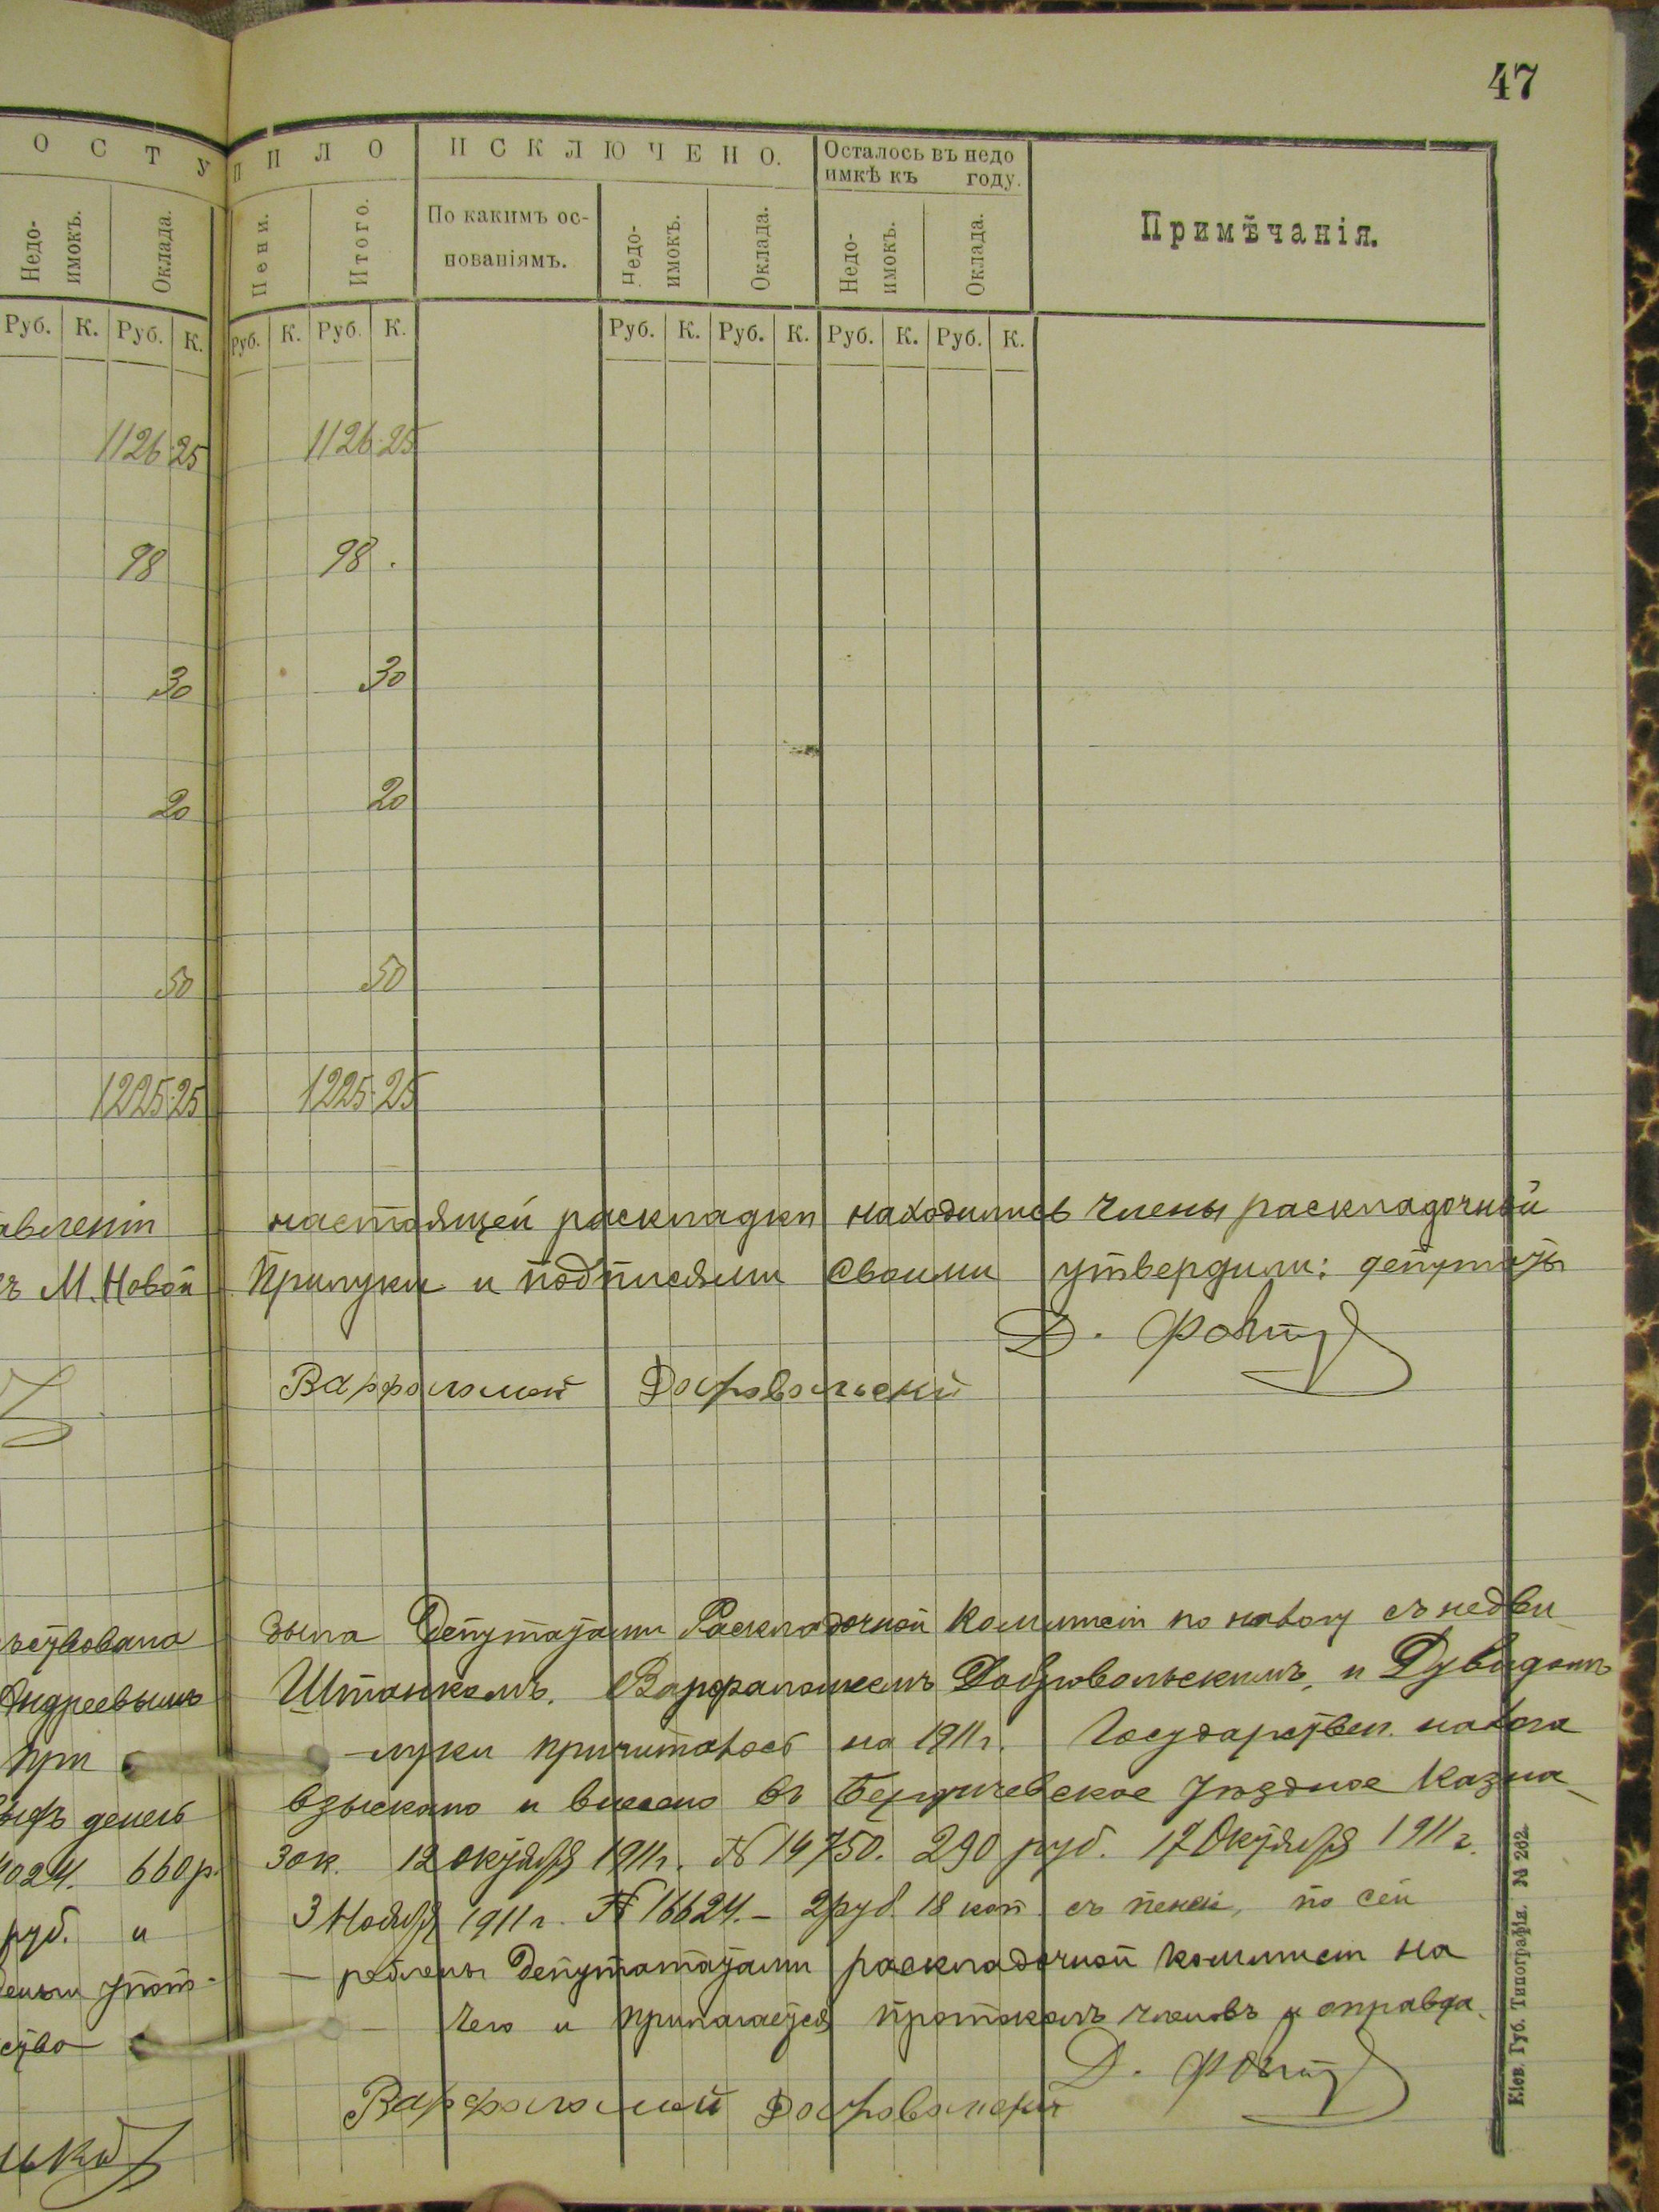 47
О С Т У П И Л О
И С К Л Ю Ч Е Н О.
Осталось въ недо
имкѣ къ году.
Примѣчанія.
Недо-
имокъ.
Оклада.
Пени.
Итого.
По какимъ ос-
нованіямъ.
Недо-
имокъ.
Оклада.
Недо-
имокъ.
Оклада.
Руб. К. Руб. К. Руб. К. Руб. К. Руб. К. Руб. К. Руб. К. Руб. К.
1126 25 1126 25
98 98
30 30
20 20
50 50
1225 25 1225 25
авленіи настоящей раскладки находились члены раскладочной
ъ М. Новой Прилуки и подписями своими утвердили: депутаты
Д. 
Варфоломей Добровольскій
ена Депутатами Раскладочной Комиссіи по налогу съ недви
Андреевымъ Штанкомъ, Варфаломеемъ Добровольскимъ, и Дувидомъ
При -луки причиталось на 1911 г. Государствен. налога
денегъ взыскано и внесено въ Бердичевское уѣздное Казна-
4024. 660 р. 30 к. 12 октября 1911 г. № 14750. 290 руб. 17 Октября 1911 г.
руб. и 3 Ноября 1911 г. № 16624. - 2 руб. 18 коп съ пеней, по сей
Депутатами раскладочной комиссіи на
ство чего и прилагается протоколъ членовъ и оправда
Д. 
Варфоломей Добровольскій
Кіев. Губ. Типографія. № 262.